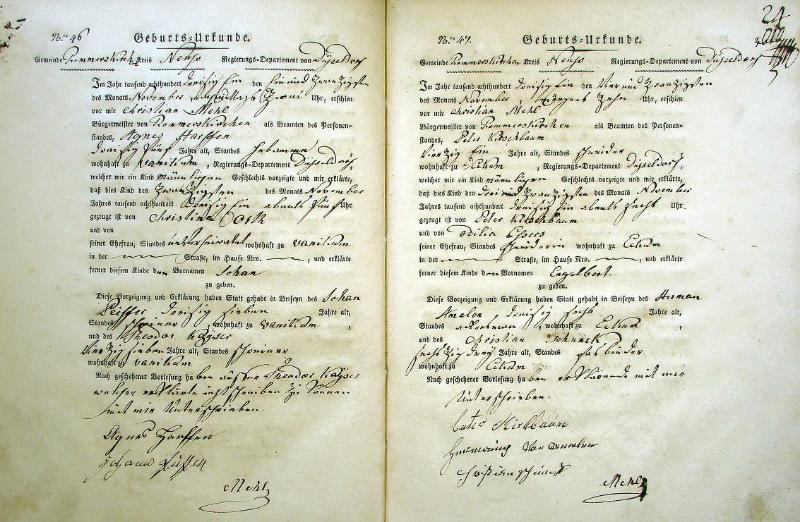 Nro. 46
Geburts-Urkunde.
Gemeinde Rommerskirchen Kreis Neuss Regierungs-Departement von Düsseldorf
Im Jahr tausend achthundert dreisig Ein den Ein und Zwanzigsten
des Monats November, nachmittags Zwei Uhr, erschien
vor mir Christian Mehl
Bürgermeister von Rommerskirchen als Beamten des Personen-
standes, Agnes Harffen
dreisig fünf Jahre alt, Standes Hebamme
wohnhaft zu Vanikum, Regierungs-Departement Düsseldorf,
welcher mir ein Kind männlichen Geschlechts vorzeigte und mir erklärte,
daß dies Kind den Zwanzigsten des Monats November
Jahres tausend achthundert dreisig Ein abends fünf Uhr
gezeugt ist von Christina
und von
seiner Ehefrau, Standes wohnhaft zu Vanikum
in der Straße, im Hause Nro. , und erklärte
ferner diesem Kinde den Vornamen Johan
zu geben.
Diese Vorzeigung und Erklärung haben Statt gehabt in Beiseyn des Johan
Peiffer, dreisig sieben Jahre alt,
Standes wohnhaft zu Vanikum,
und des Theodor
vierzig sieben Jahre alt, Standes
wohnhaft zu Vanikum
Nach geschehener Vorlesung haben außer Theodor
welcher erklärte nicht schreiben zu können
mit mir Unterschrieben.
Agnes Harffen
Mehl
24
Nro. 47.
Geburts-Urkunde.
Gemeinde Rommerskirchen Kreis Neuss Regierungs-Departement von Düsseldorf
Im Jahr tausend achthundert dreisig Ein den Vier und Zwanzigsten
des Monats November, Zehn Uhr, erschien
vor mir Christian Mehl
Bürgermeister von Rommerskirchen als Beamten des Personen-
standes, Peter Kirschbaum
Vierzig Ein Jahre alt, Standes
wohnhaft zu Eckum, Regierungs-Departement Düsseldorf,
welcher mir ein Kind männlichen Geschlechts vorzeigte und mir erklärte,
daß dies Kind den drei und Zwanzigsten des Monats November
Jahres tausend achthundert dreisig Ein abends sechs Uhr
gezeugt ist von Peter Kirschbaum
und von Odilia Essers
seiner Ehefrau, Standes wohnhaft zu Eckum
in der Straße, im Hause Nro. , und erklärte
ferner diesem Kinde den Vornamen Engelbert.
zu geben.
Diese Vorzeigung und Erklärung haben Statt gehabt in Beiseyn des Herman
dreisig sechs Jahre alt,
Standes Ackerman, wohnhaft zu Eckum,
und des Christian
sechszig drei Jahre alt, Standes Fasbinder
wohnhaft zu Eckum
Nach geschehener Vorlesung haben mit mir
Unterschrieben.
Mehl